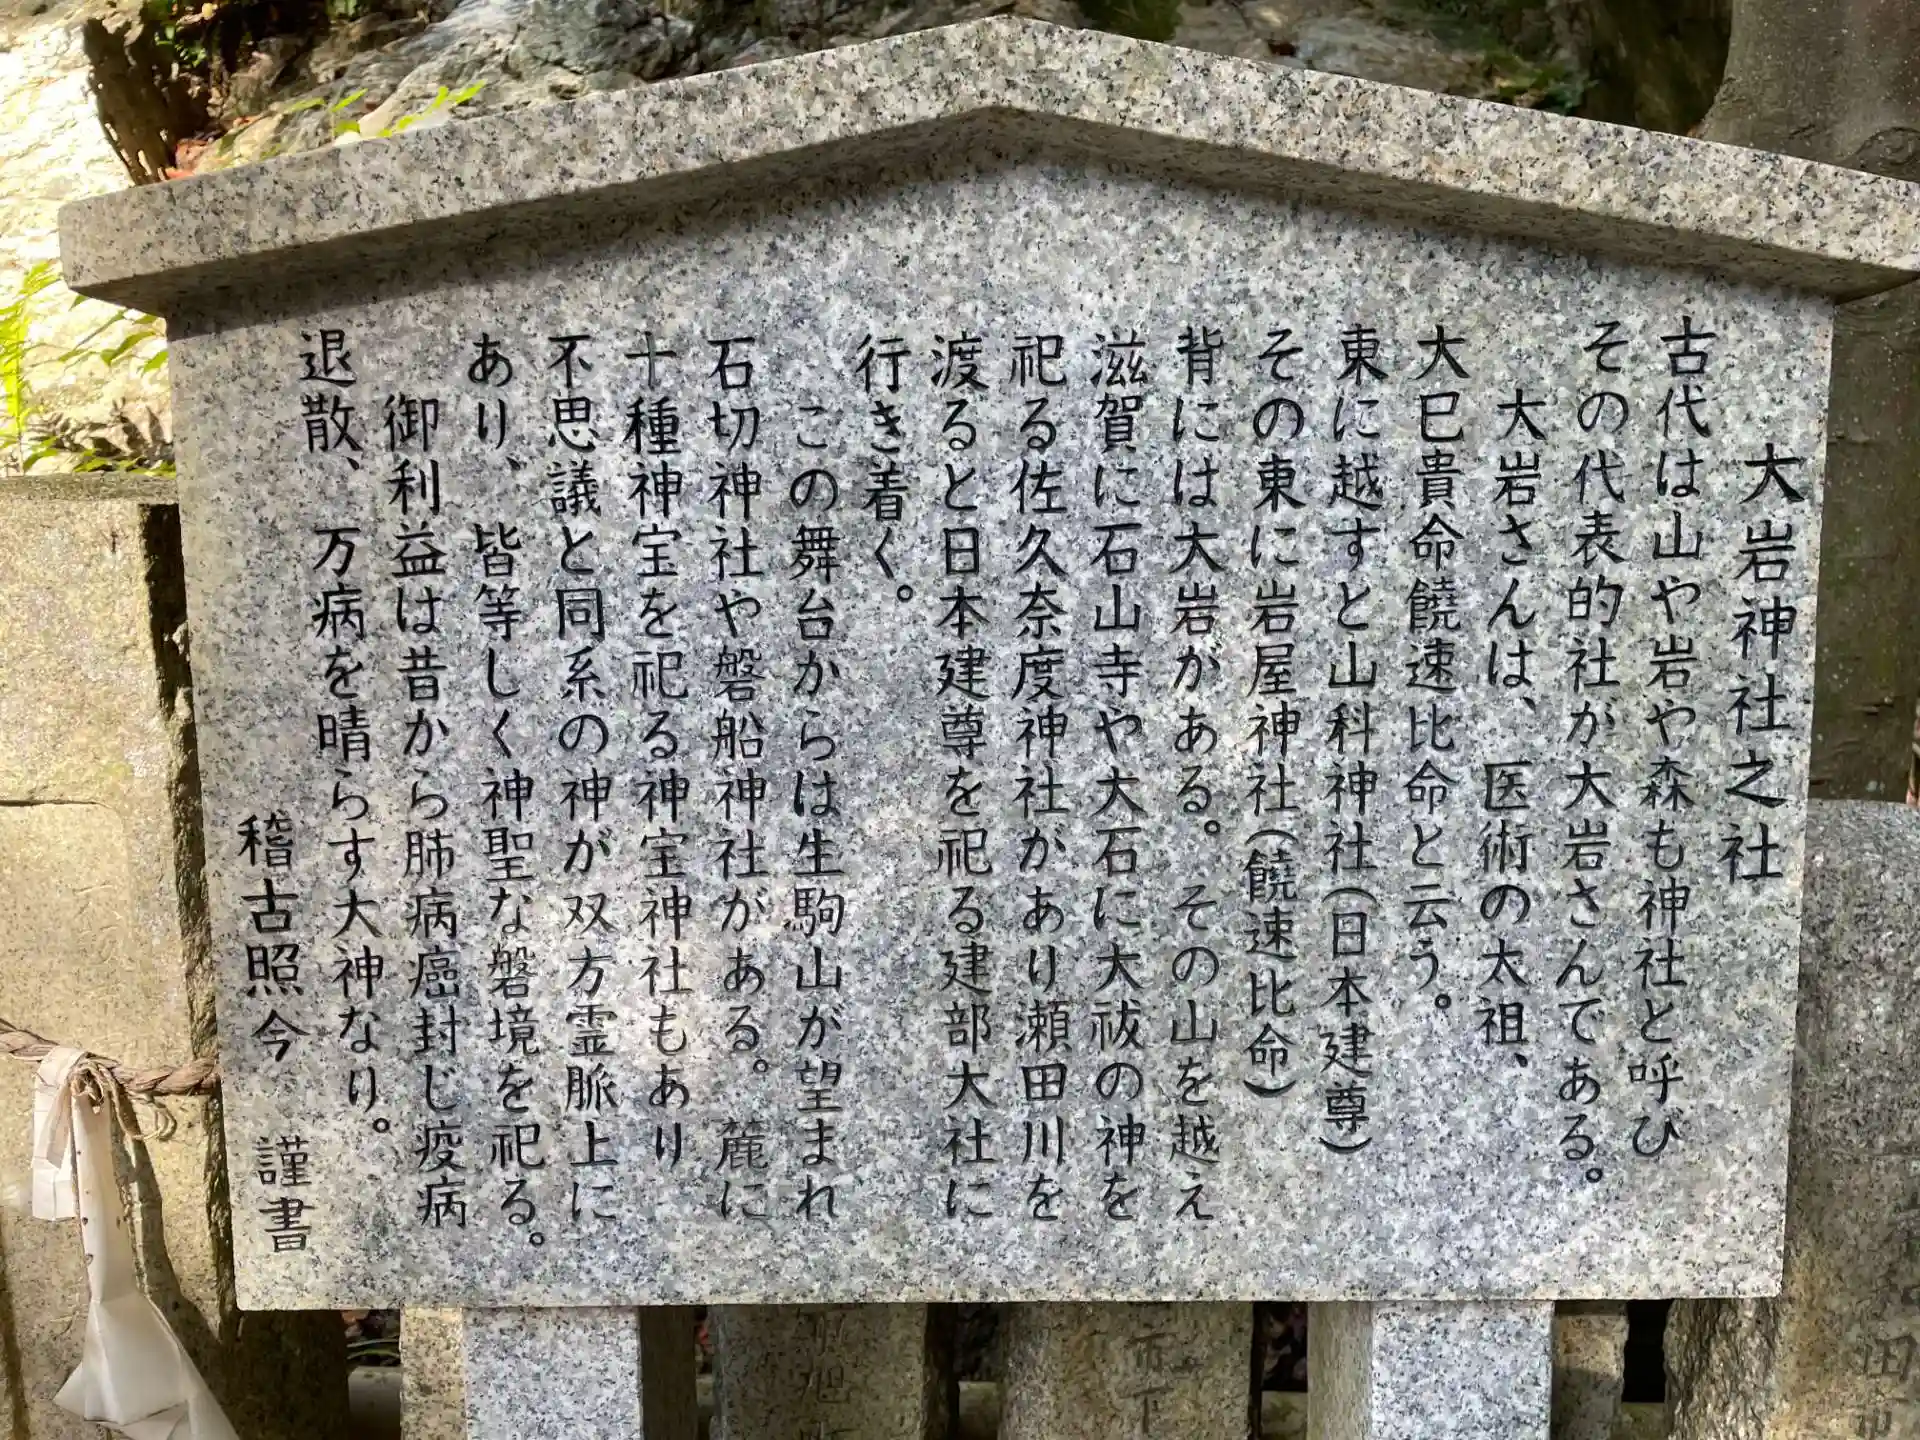 大岩神社之社
古代は山や岩や森も神社と呼び
その代表的社が大岩さんてある。
大岩さんは、医術の太祖、
大巳貴命饒速比命と云う。
東に越すと山科神社(日本建尊)
その東に岩屋神社(饒速比命)
背には大岩がある。その山を越え
滋賀に石山寺や大石に大祓の神を
祀る佐久奈度神社があり瀬田川を
渡ると日本建尊を祀る建部大社に
行き着く。
この舞台からは生駒山が望まれ
石切神社や磐船神社がある。麓に
十種神宝を祀る神宝神社もあり
不思議と同系の神が双方霊脈上に
あり、皆等しく神聖な磐境を祀る。
御利益は昔から肺病癌封じ疫病
退散、万病を晴らす大神なり。
稽古照今 謹書